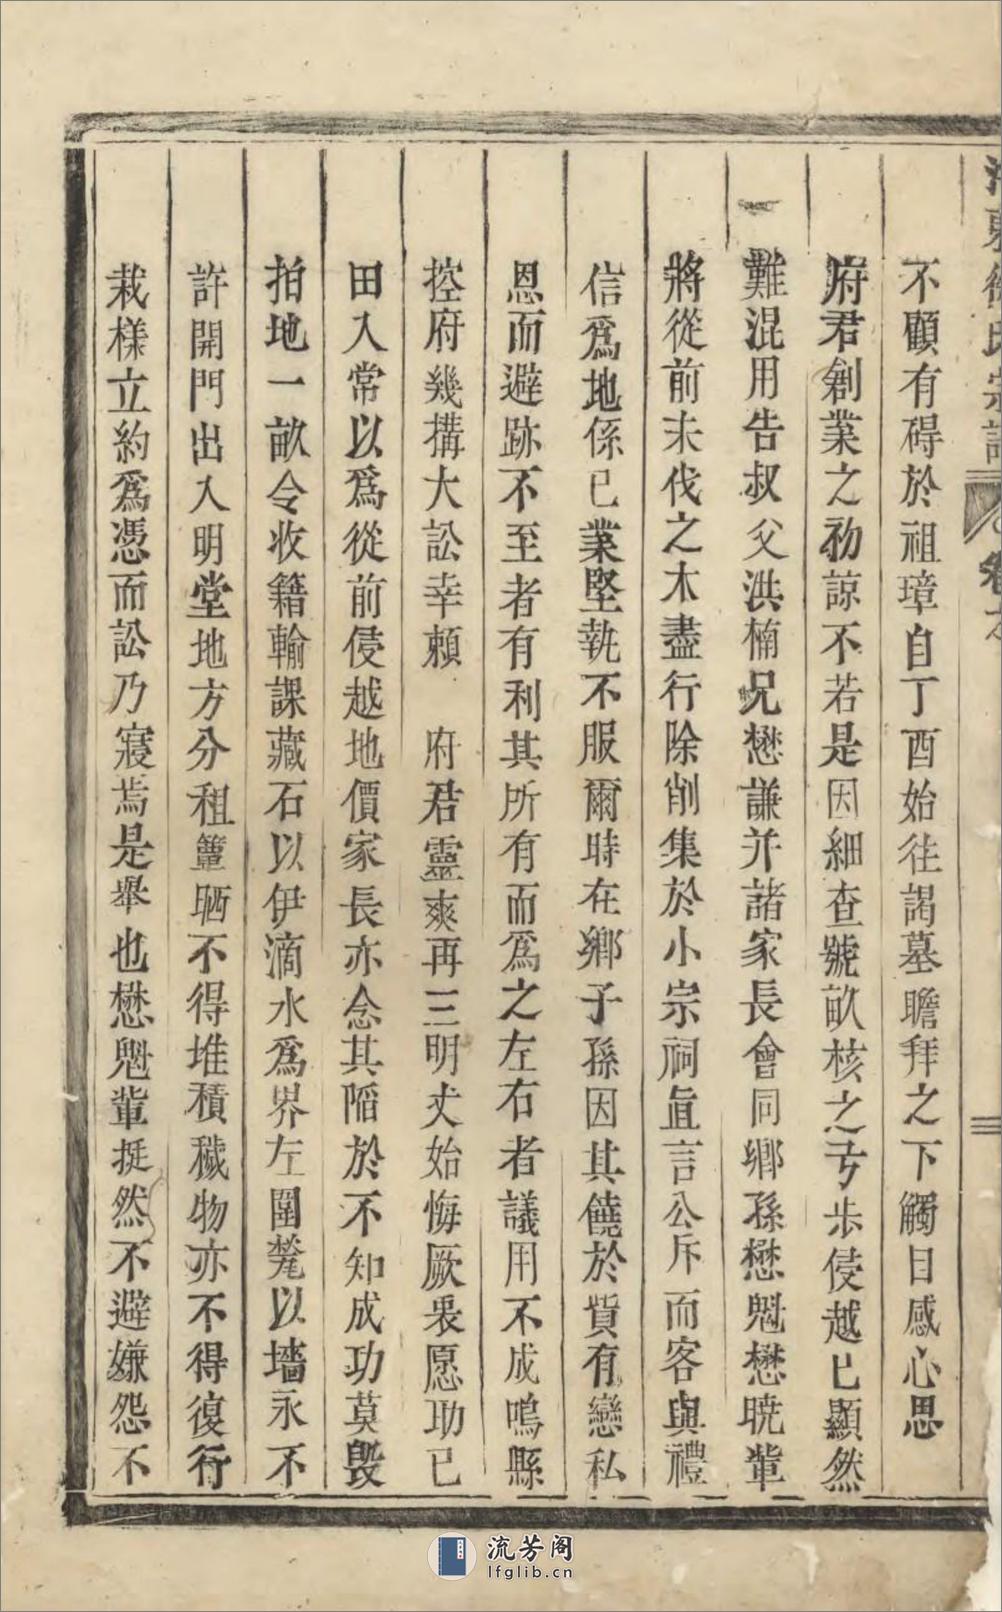 不顧有碍於祖璋自丁酉始往謁墓瞻拜之下觸目感心思
府君創業之初諒不若是因細查號畝核之亏步侵越已顯然
難混用告叔父洪楠兄懋謙并諸家長會同鄉孫懋魁懋曉輩
將從前未伐之木盡行除削集於小宗祠直言公斥而客與禮
信爲地係已業堅執不服爾時在鄉子孫因其饒於貲有戀私
恩而避跡不至者有利其所有而爲之左右者議用不成鳴縣
控府幾搆大訟幸賴 府君靈爽再三明丈始悔厥衷愿助已
田入常以爲從前侵越地價家長亦念其陷於不知成功莫毀
拍地一畝令收籍輸課藏石以伊滴水爲界左圍凳以墻永不
許開門出入明堂地方分租籗晒不得堆積穢物亦不得復行
栽樣立約爲憑而訟乃寢焉是舉也懋魁輩挺然不避嫌怨不
流芳阁
lfglib.cn